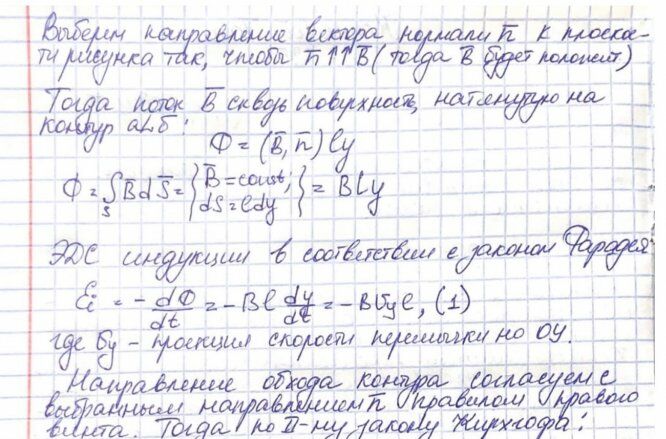 Выберем направление вектора нормали n̄ к плоскос-
ти рисунка так, чтобы n̄↑↑B̄ (тогда B̄ будет положит)
Тогда поток B̄ сквозь поверхность, натянутую на
контур aLб:
Φ = (B̄, n̄) ly
Φ = ∫_S B̄ dS̄ = { B̄ = const; dS = ldy } = Bly
ЭДС индукции в соответствии с законом Фарадея
Ɛi = - dΦ/dt = -Bl dy/dt = -Bυyl, (1)
где υy - проекция скорости перемычки на OY.
Направление обхода контура согласуем с
выбранным направлением n̄ правилом правого
винта. Тогда по II-му закону Кирхгофа: